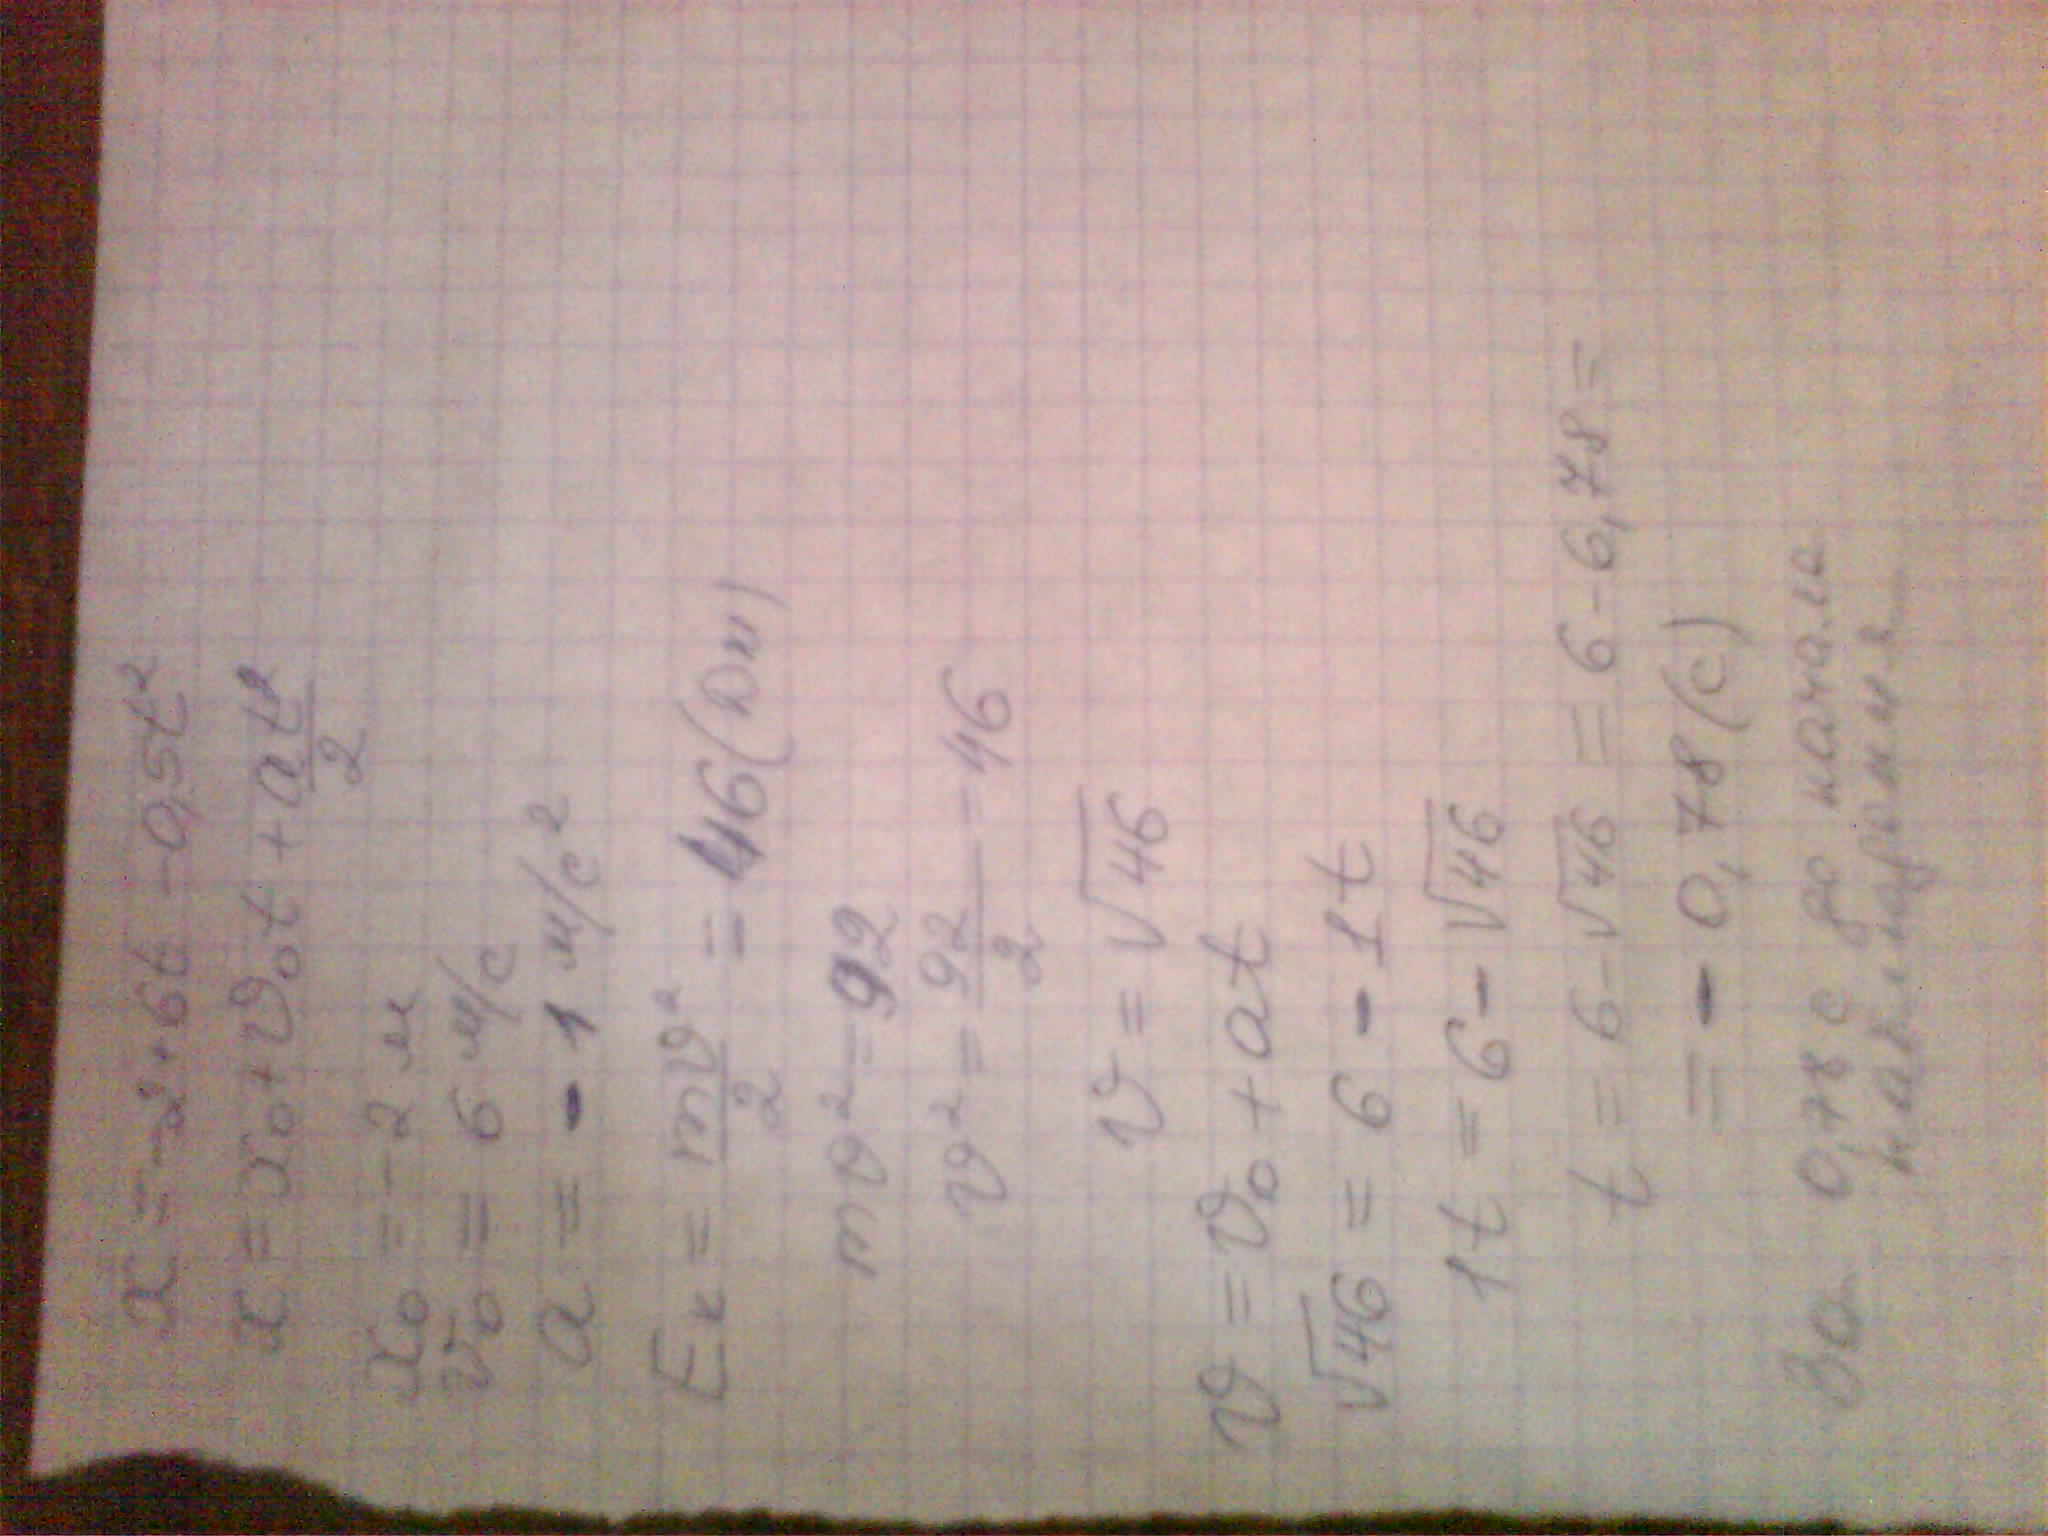 x = -2 + 6t - 0,5t²
x = x₀ + v₀t + at²/2
x₀ = -2 м
v₀ = 6 м/с
a = -1 м/с²
Eк = mv²/2 = 46 (Дж)
mv² = 92
v² = 92/2 = 46
v = √46
v = v₀ + at
√46 = 6 - 1t
1t = 6 - √46
t = 6 - √46 = 6 - 6,78 =
= - 0,78 (с)
За 0,78 с до начала
наблюдения